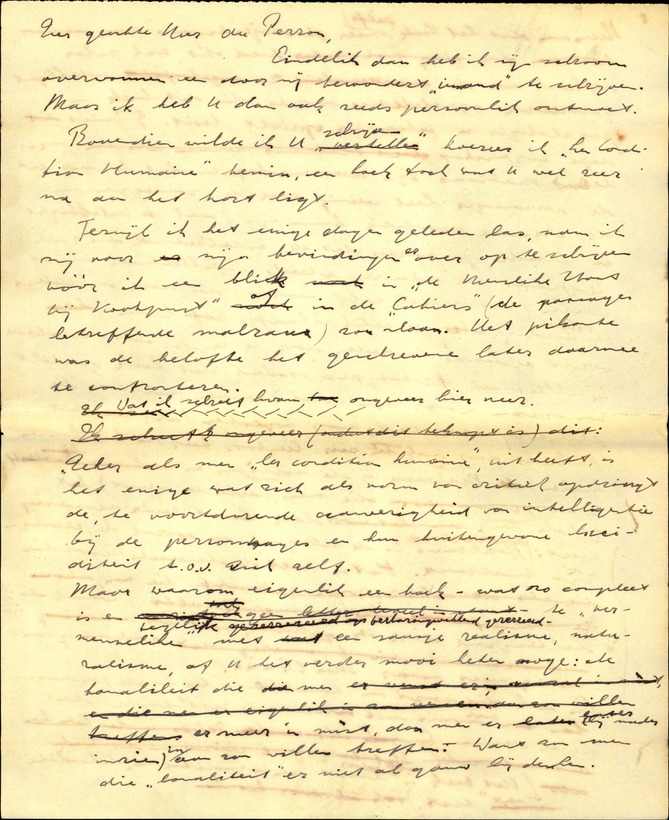 Zeer geachte Heer du Perron,
Eindelik dan heb ik mijn schroom
overwonnen een door mij bewonderd "iemand" te schrijven.
Maar ik heb U dan ook reeds persoonlik ontmoet.
Bovendien wilde ik U "schrijven vertellen" hoezeer ik "la Condi-
tion Humaine" bemin, een boek toch wat U wel zeer
na aan het hart ligt.
Terwijl ik het enige dagen geleden las, nam ik
mij voor mijn bevindingen er over op te schrijven
vóór ik een blik in "de Menselike Staat
bij Kookpunt" of in de "Cahiers" (de passages
betreffende Malraux) zou slaan. Het pikante
was de belofte het geschrevene later daarmee
te confronteren.
Wat ik schreef kwam ongeveer hier neer.
Ik schreef ongeveer (omdat dit beknopt is) dit:
"Zeker als men "la condition humaine" uit heeft, is
het enige wat zich als norm van critiek opdringt
de, te voortdurende aanwezigheid van intelligentie
bij de personnages en hun buitengewone luci-
diteit t.o.v. zich zelf.
Maar waarom eigenlik een boek - wat zo compleet
is en te "ver-
menselike" met een sausje realisme, natu-
ralisme, of U het verder mooi heten moge: de
banaliteit die men
er meer in mist, dan men er
in zou willen treffen? Want zou men
die "banaliteit" er niet al gauw bij denken.